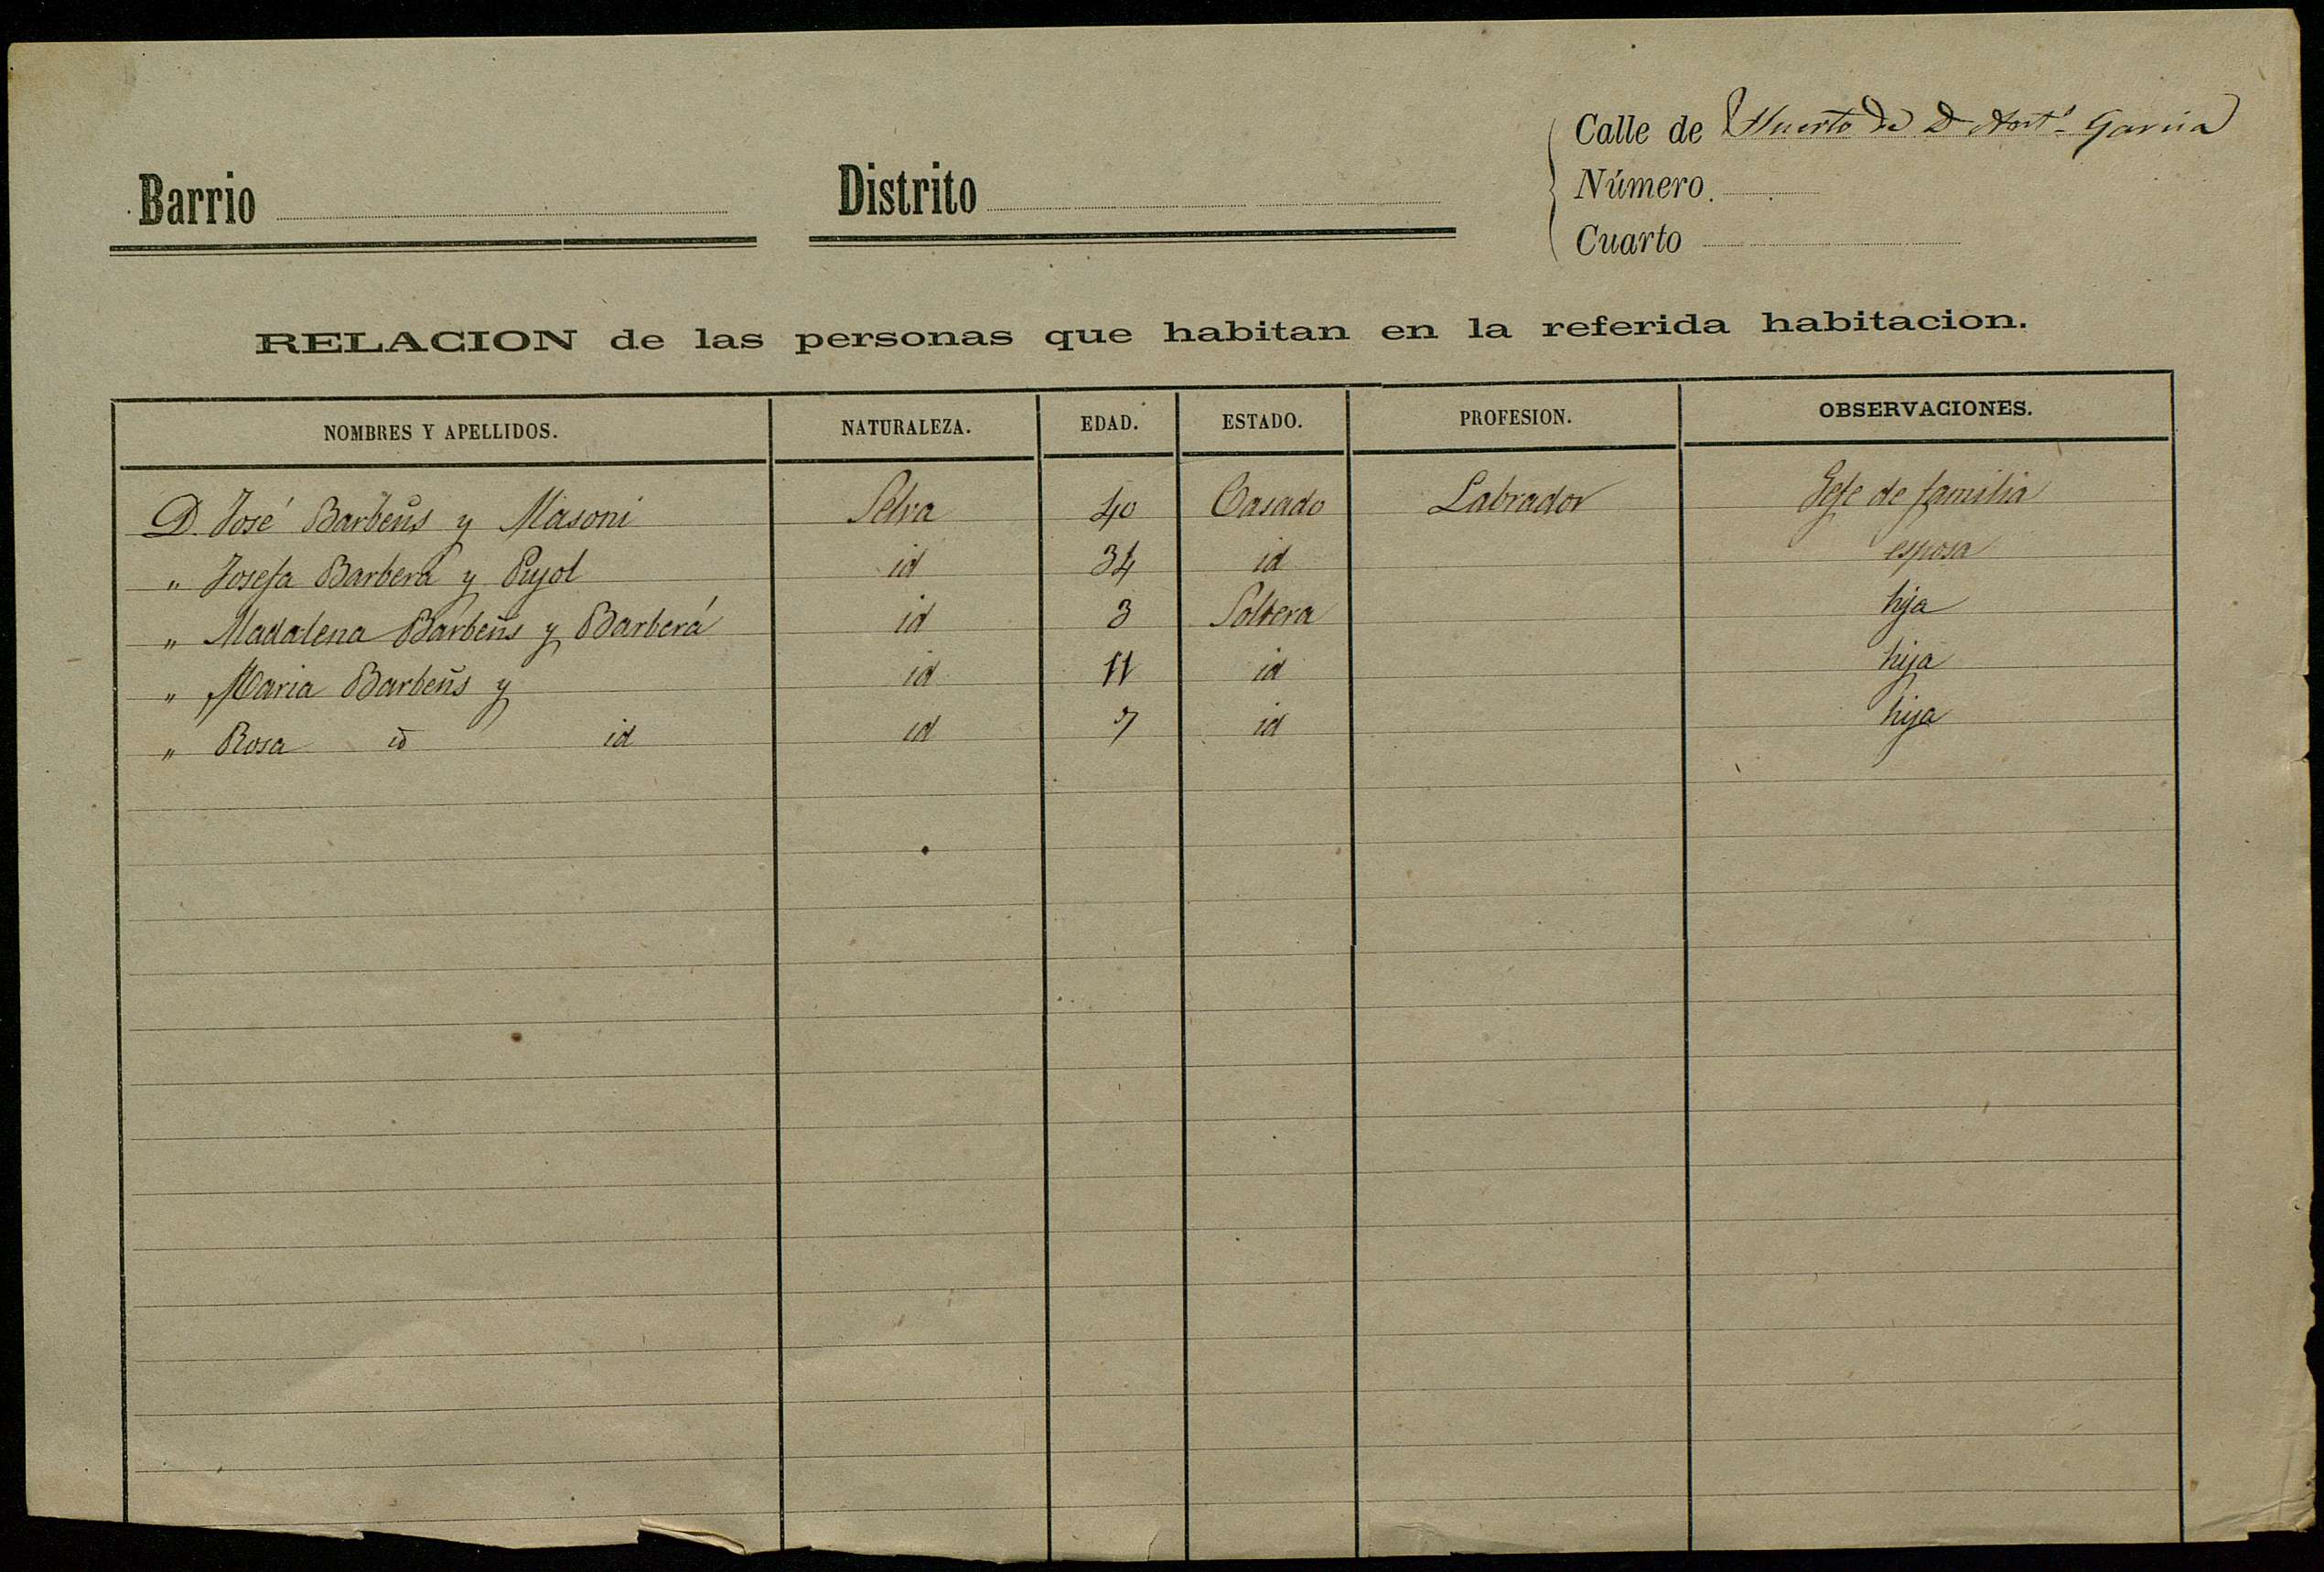 Calle de Huerto de D. Antº Garcia
Barrio
Distrito
Número.
Cuarto
RELACION de las personas que habitan en la referida habitacion.
NOMBRES Y APELLIDOS. NATURALEZA. EDAD. ESTADO. PROFESION. OBSERVACIONES.
D. José Barbeñs y Masoni Selva 40 Casado Labrador Gefe de familia
„ Josefa Barberá y Pujol id 34 id esposa
„ Madalena Barbeñs y Barberá id 3 Soltera hija
„ Maria Barbeñs y id 11 id hija
„ Rosa id id id 7 id hija